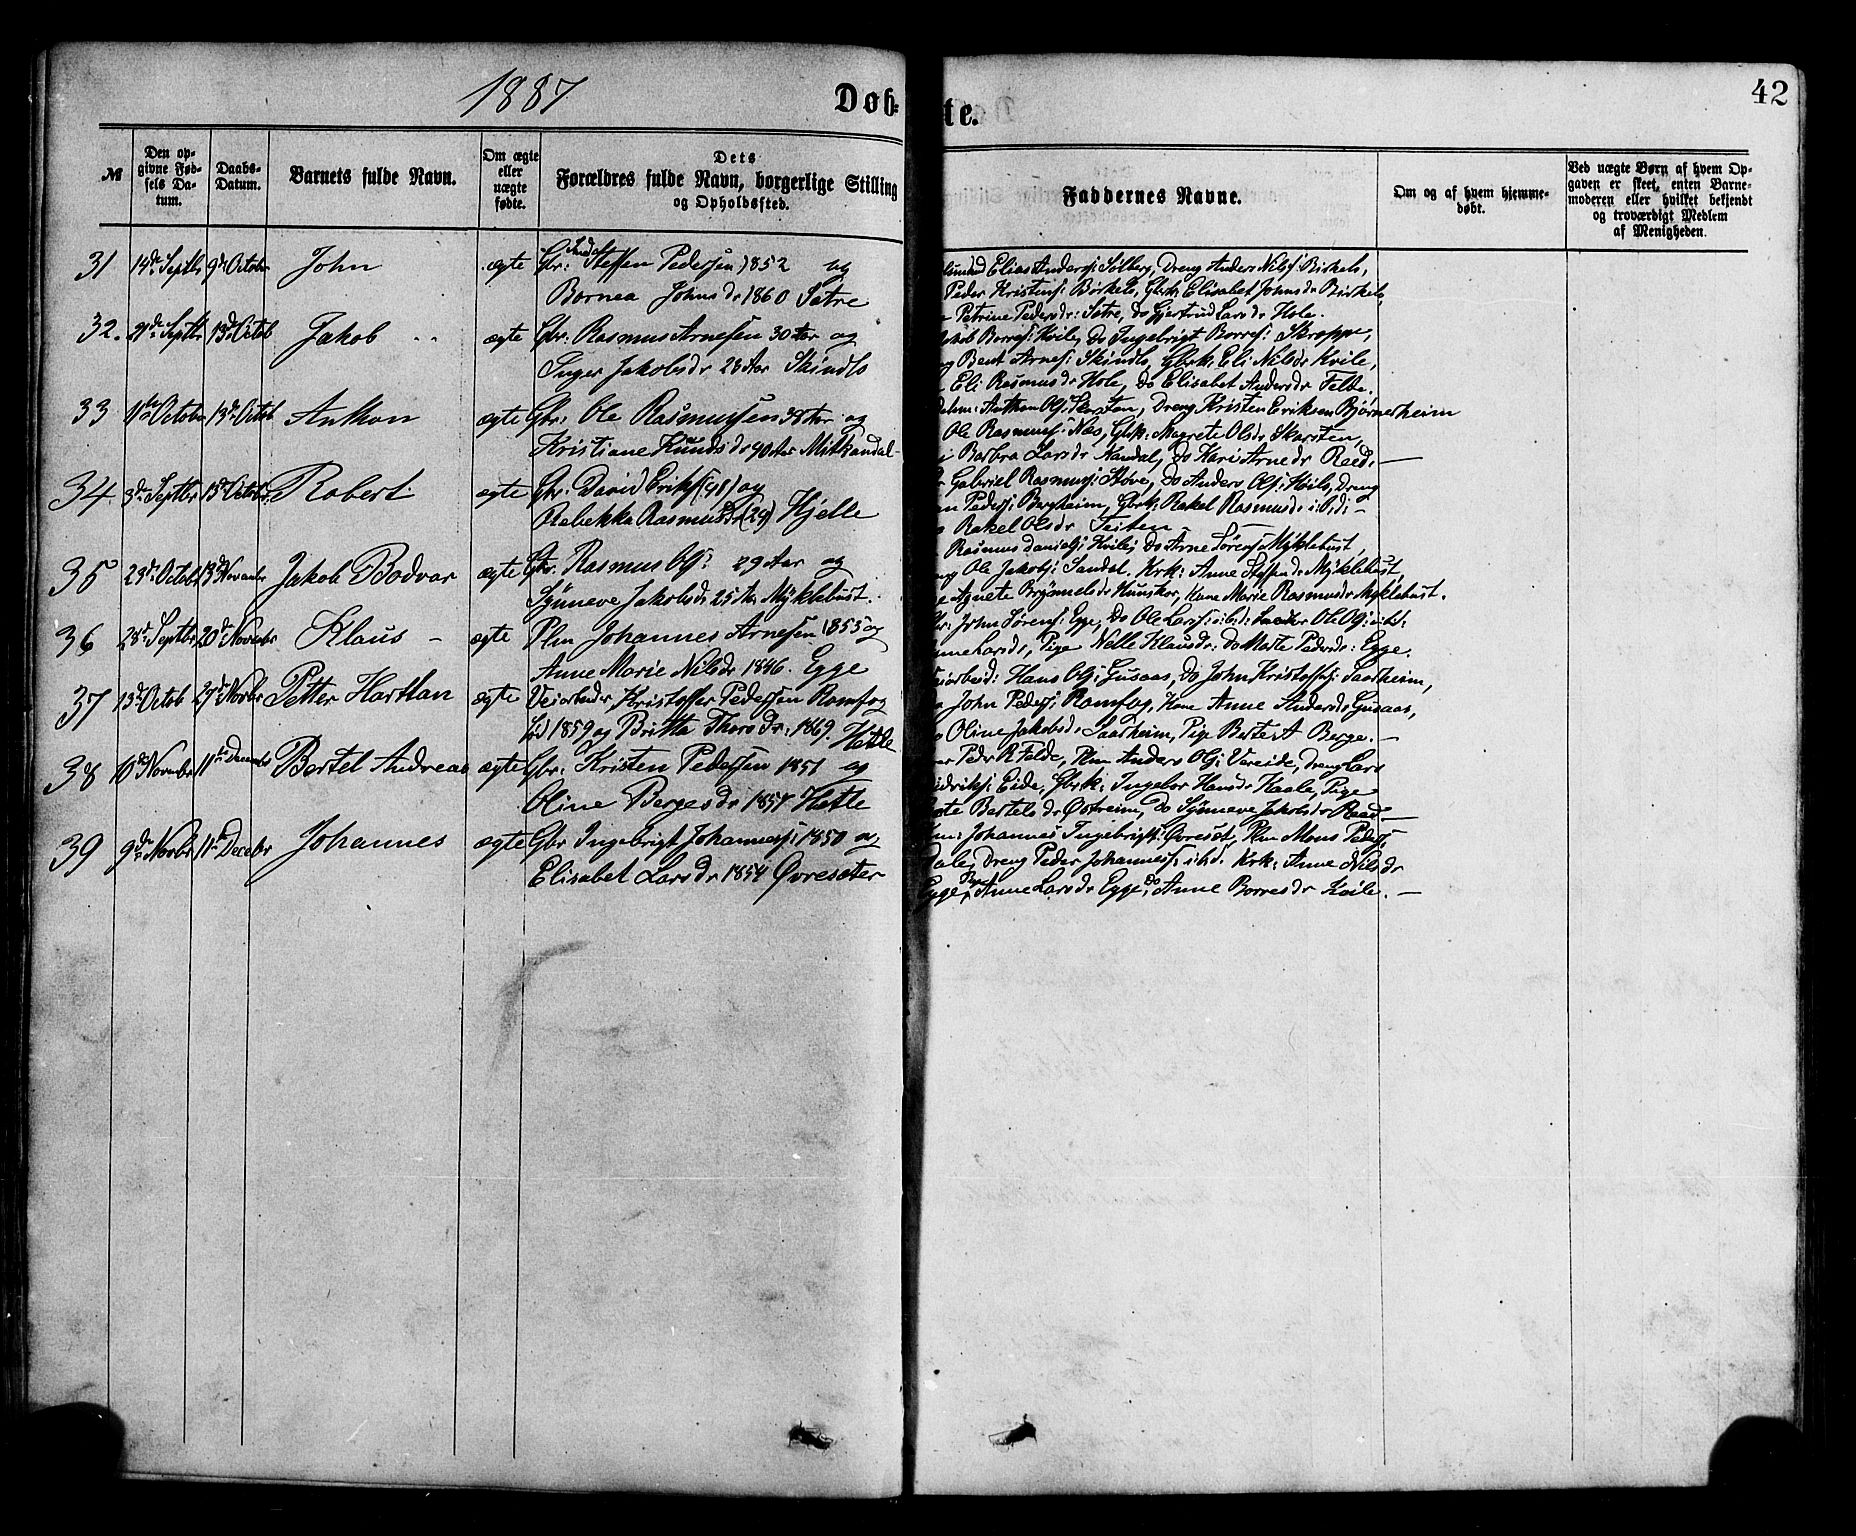 1887 Døb-
te. 42
№
Den op-
givne Fød-
sels Da-
tum.
Daabs-
Datum.
Barnets fulde Navn.
Om ægte
eller
uægte
fødte.
Dets
Forældres fulde Navn, borgerlige Stilling
og Opholdssted.
Faddernes Navne.
Om og af hvem hjemme-
døbt.
Ved uægte Børn af hvem Op-
gaven er skeet, enten Barne-
moderen eller hvilket bekjendt
og troværdigt Medlem
af Menigheden.
31 14de Septb 9de Octobr John ægte Gbr: Steffen Pedersen 1852 og
Bornea Johnsdr 1860 Sætre
Elias Anders: Solberg, Dreng Anders Nilss: Birkelo,
Peder Kristens: Birkelo, Gbrk: Elisabet Johnsdr Birkelo,
Petrine Pedersdr: Sætre, do Gjertrud Larsdr Hole.
32. 21de Septbr 13de Octob Jakob ægte Gbr: Rasmus Arnesen 30 Aar og
Inger Jakobsdr 28 Aar Skindlo
Jakob Borres: Kvile, do Ingebrigt Borres: Skroppe,
Bent Arnes: Skindlo, Gbrk: Eli Nilsdr Kvile,
Eli Rasmusdr Hole, do Elisabet Andersdr Felde.
33 11te Octobr 13de Octob Anthon ægte Gbr: Ole Rasmussen 38 Aar og
Kristiane Knudsdr 40 Aar Mitkandal
Anthon Ols: Skarsten, Dreng Kristen Eriksen Bjørnerheim
Ole Rasmuss: Næs, Gbrk: Magrete Olsdr Skarsten,
Barbra Larsdr Nandal, do Kari Arnedr Reed. —
34. 3de Septbr 15de Octobr Robert ægte Gbr: David Eriks: (48) og
Rebekka Rasmusdr (29) Hjelle
Gabriel Rasmuss: Støve, do Anders Ols: Hilo, Dreng
Peders: Bergheim, Gbrk: Rakel Rasmusdr: ibid: —
Rakel Olsdr Teiten —
35 23de Octob 13de Novembr Jakob Bodvar ægte Gbr. Rasmus Ols: 29 Aar og
Synneve Jakobsdr 25 Aar Myklebust.
Rasmus Daniels: Kvile, do Arne Sørens: Myklebust,
Ole Jakobs: Sandal. Krk: Anne Steffensdr Myklebust,
Agnete Brynnelsdr Hunskor, Kone Marie Rasmusdr Myklebust.
36 28de Septbr 20de Novembr Klaus — ægte Plm Johannes Arnesen 1855 og
Anne Marie Nilsdr 1846. Egge
John Sørens: Egge, do Ole Lars: ibid: Ole Ols: ibid:
Larsdr, Pige Nelle Klausdr: do Marte Pedersdr: Egge.
37 13de Octob 27de Novbr Petter Harttan ægte Veiarbeider Kristoffer Pedersen Ramfog
fød 1859 og Britta Thorsdr: 1869. Hetle
Hans Ols: Gusaas, do John Kristoffs: Saarheim,
John Peders: Ramfog, Kone Anne Andersdr Gusaas,
Oline Jakobsdr Saarheim, Pige Berte A Berge. —
38 10de Novembr 11te Decembr Bertel Andreas ægte Gbr: Kristen Pedersen 1851 og
Oline Bergesdr 1857 Hetle
Ped: R Felde, Plm Anders Ols: Vereide, Dreng Lars
Eide, Gbrk: Ingebor Hansdr Kaale, Pige
Bertelsdr Østreim, do Synneve Jakobsdr Reed. —
39 9de Novbr 11te Decebr Johannes ægte Gbr Ingebrigt Johanness: 1850 og
Elisabet Larsdr 1854 Øvresæter
Johannes Ingebrigts: Øvresæt, Plm Mons Peders:
Dreng Peder Johanness: ibid: Krk: Anne Nilsdr
Egge, Pige Anne Larsdr Egge, do Anne Borresdr Kvile. —